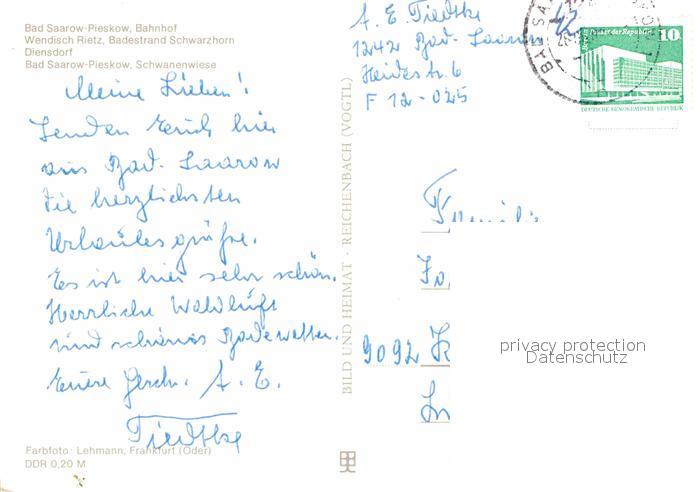 Bad Saarow-Pieskow, Bahnhof
Wendisch Rietz, Badestrand Schwarzhorn
Diensdorf
Bad Saarow-Pieskow, Schwanenwiese
Meine Lieben!
Senden Euch hier
aus Bad. Saarow
die herzlichsten
Urlaubsgrüße.
Es ist hier sehr schön.
Herrliche Waldluft
und schönes Badewetter.
Eure Gesch. A. E.
Tiedtke
Farbfoto: Lehmann, Frankfurt (Oder)
DDR 0,20 M
BILD UND HEIMAT · REICHENBACH (VOGTL)
A. E. Tiedtke
1242 Bad. Saarow
Heidestr. 6
F 12-025
BAD SAA
Palast der Republik
10
DEUTSCHE DEMOKRATISCHE REPUBLIK
Familie
9092 K
privacy protection
Datenschutz